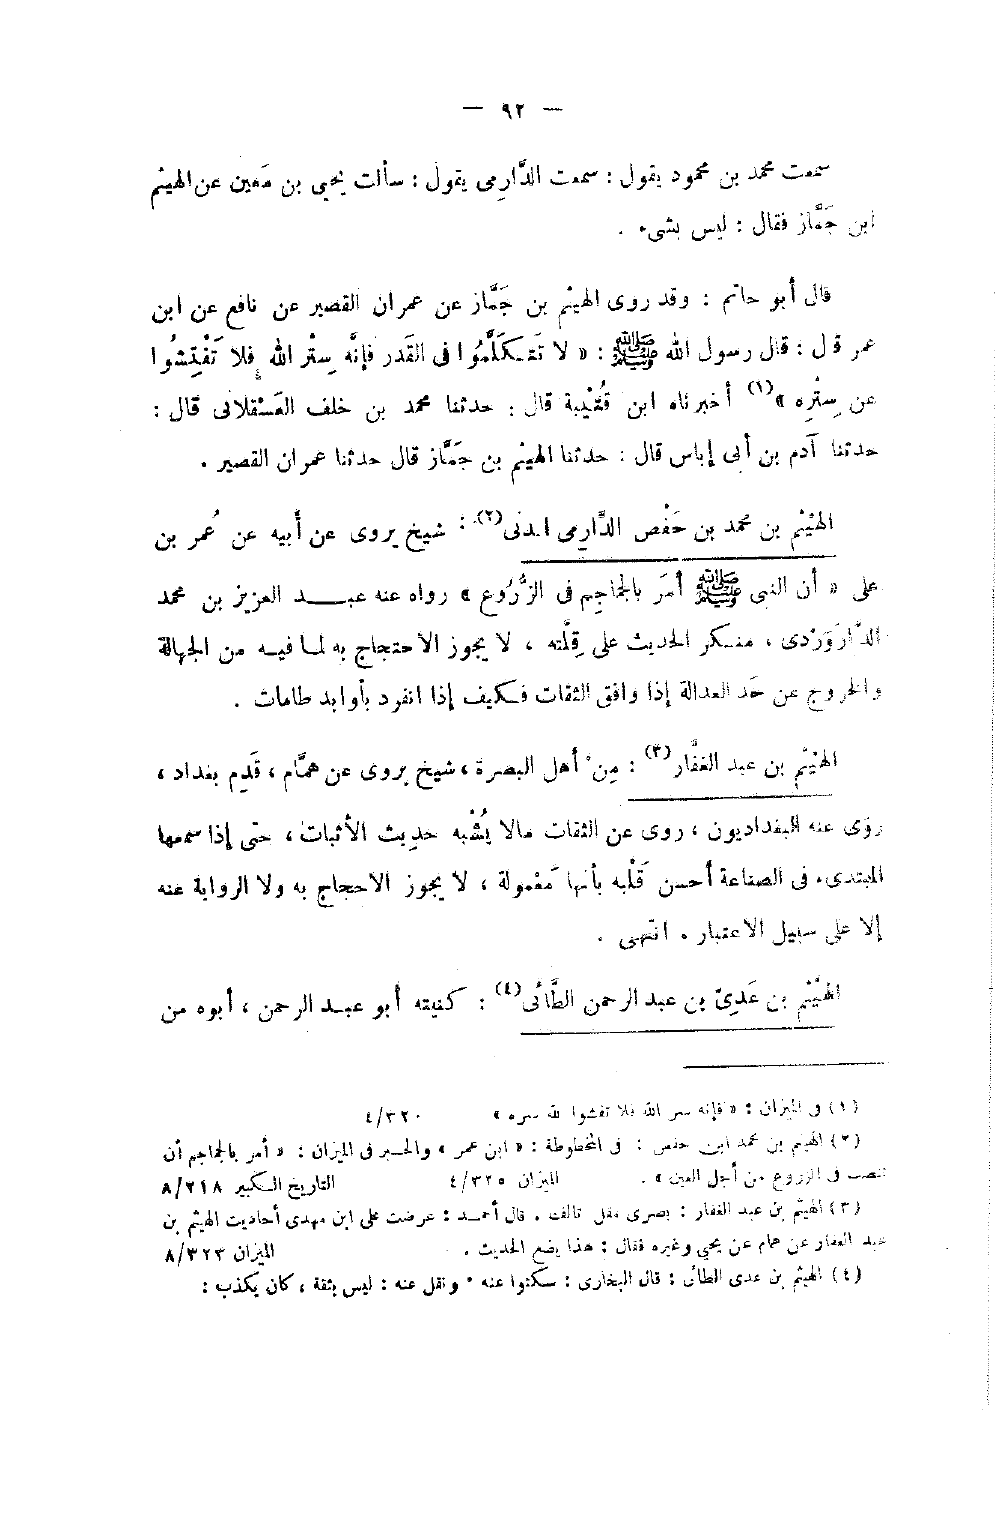 — ٩٢ —
سمعت محمد بن محمود يقول : سمعت الدَّارِمى يقول : سألت يحيى بن مَعين عن الهيثم
ابن جَمَّاز فقال : ليس بشىء .
قال أبو حاتم : وقد روى الهيثم بن جَمَّاز عن عمران القصير عن نافع عن ابن
عمر قال : قال رسول الله ﷺ : « لا تَتَكَلَّمُوا فى القَدر فإنَّه سِتْر الله فلا تَفْتِشُوا
عن سِتْرِه »(١) أخبرناه ابن قُتَيْبة قال : حدثنا محمد بن خلف العَسْقلانى قال :
حدثنا آدم بن أبى إياس قال : حدثنا الهيثم بن جَمَّاز قال حدثنا عمران القصير .
الهَيْثم بن محمد بن حَفْص الدَّارِمى المدنى(٢) : شيخ يروى عن أبيه عن عُمر بن
على « أن النبى ﷺ أمَرَ بالجَماجِم فى الزُّرُوع » رواه عنه عبد العزيز بن محمد
الدَّارَوَرْدى ، منكر الحديث على قِلَّته ، لا يجوز الاحتجاج به لما فيه من الجهالة
والخروج عن حَد العدالة إذا وافق الثقات فكيف إذا انفرد بأوابد طامات .
الهَيْثم بن عبد الغفَّار(٣) : مِنْ أهل البصرة ، شيخ يروى عن همَّام ، قَدِم بغداد ،
رَوَى عنه البغداديون ، روى عن الثقات مالا يُشْبه حديث الأثبات ، حتّى إذا سمعها
المبتدىء فى الصناعة أحسن قَلْبه بأنها مَعْمولة ، لا يجوز الاحجاج به ولا الرواية عنه
إلا على سبيل الاعتبار . انتهى .
الهَيْثم بن عَدِىّ بن عبد الرحمن الطَّائى(٤) : كنيته أبو عبد الرحمن ، أبوه من
(١) فى الميزان : « فإنه سر الله فلا تفشوا لله سره » ٤/٣٢٠
(٢) الهيثم بن محمد ابن حفص : فى المخطوطة : « ابن عمر » والخبر فى الميزان : « أمر بالجماجم أن
تنصب فى الزروع من أجل العين » . الميزان ٤/٣٢٥ التاريخ الكبير ٨/٢١٨
(٣) الهيثم بن عبد الغفار : بصرى مقل تالف . قال أحمد : عرضت على ابن مهدى أحاديث الهيثم بن
عبد الغفار عن همام عن يحيى وغيره فقال : هذا يضع الحديث . الميزان ٨/٣٢٣
(٤) الهيثم بن عدى الطائى : قال البخارى : سكتوا عنه • ونقل عنه : ليس بثقة ، كان يكذب :